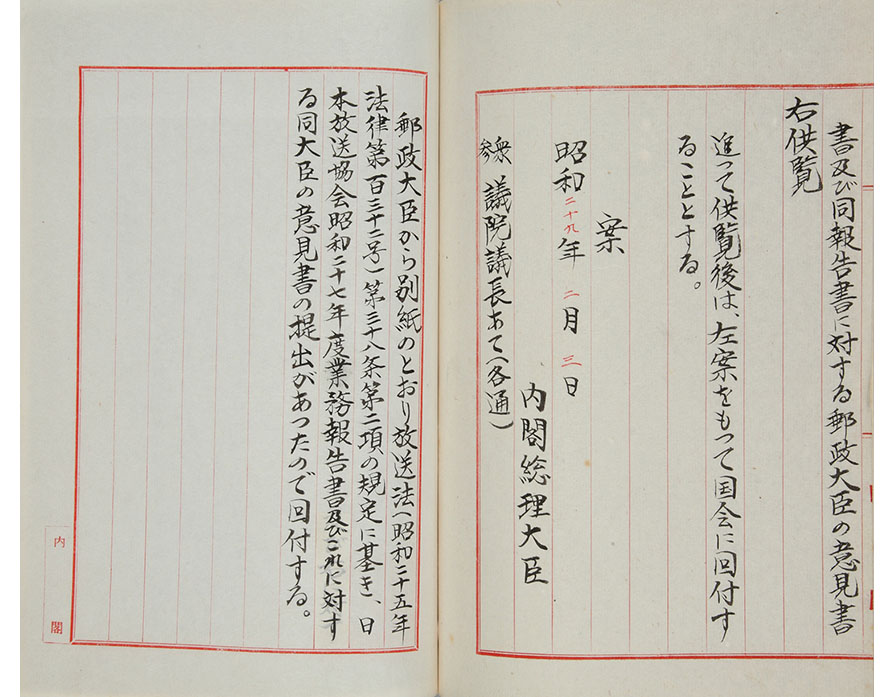 書及び同報告書に対する郵政大臣の意見書
右供覧
追って供覧後は、左案をもって国会に回付す
ることとする。
案
昭和二十九年二月三日
内閣総理大臣
衆
参
議院議長あて（各通）
郵政大臣から別紙のとおり放送法（昭和二十五年
法律第百三十二号）第三十八条第二項の規定に基き、日
本放送協会昭和二十七年度業務報告書及びこれに対す
る同大臣の意見書の提出があつたので回付する。
内閣